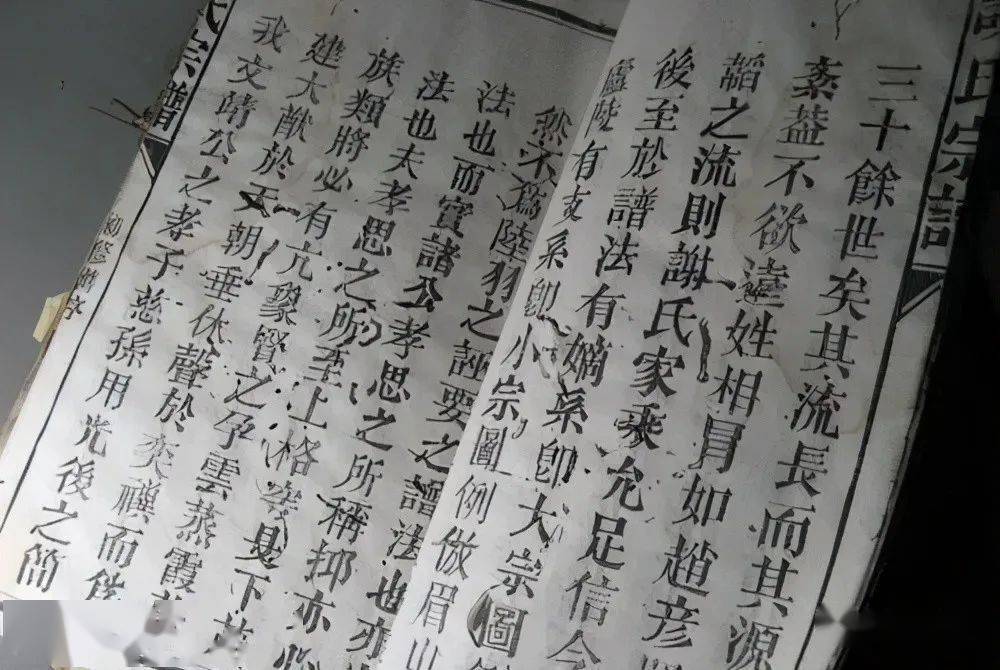 氏宗譜
三十餘世矣其流長而其源
紊葢不欲逹姓相冐如趙彦
韜之流則謝氏家乘允足信今
後至於譜法有嫡系卽大宗圖
廬陵有支系卽小宗圖例倣眉山
然不為陸羽之誣要之譜法也亦
法也而實諸公孝思之所稱抑亦必
法也夫孝思之所至上格穹昊下
族類將必有亢象賢之孕雲蒸霞
建大猷於天朝垂休聲於奕禩而後
我文靖公之孝子慈孫用光後之簡
氏宗譜